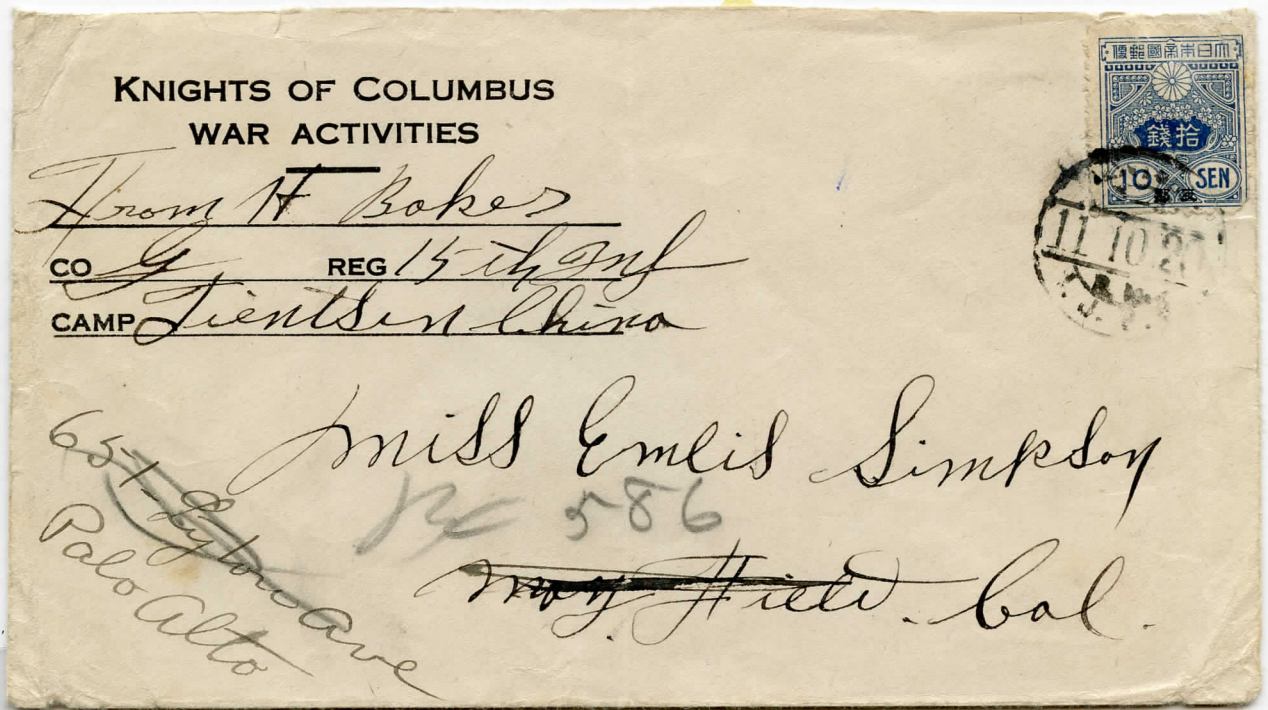 KNIGHTS OF COLUMBUS
WAR ACTIVITIES
From H Baker
CO G REG 15th Inf
CAMP Tientsin China
大日本帝國郵便
拾錢
10 SEN
11 10 20
Miss Emlis Simpson
Bx 586
May Field. Cal.
651 Lytton Ave
Palo Alto